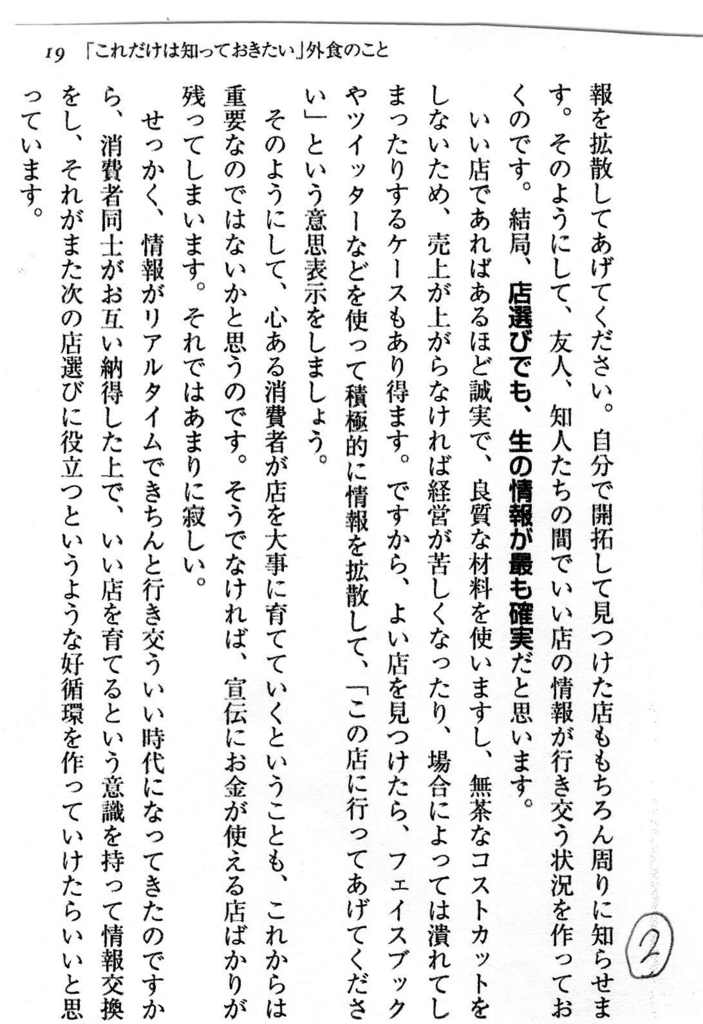 19 「これだけは知っておきたい」外食のこと
報を拡散してあげてください。自分で開拓して見つけた店ももちろん周りに知らせま
す。そのようにして、友人、知人たちの間でいい店の情報が行き交う状況を作ってお
くのです。結局、店選びでも、生の情報が最も確実だと思います。
いい店であればあるほど誠実で、良質な材料を使いますし、無茶なコストカットを
しないため、売上が上がらなければ経営が苦しくなったり、場合によっては潰れてし
まったりするケースもあり得ます。ですから、よい店を見つけたら、フェイスブック
やツイッターなどを使って積極的に情報を拡散して、「この店に行ってあげてくださ
い」という意思表示をしましょう。
そのようにして、心ある消費者が店を大事に育てていくということも、これからは
重要なのではないかと思うのです。そうでなければ、宣伝にお金が使える店ばかりが
残ってしまいます。それではあまりに寂しい。
せっかく、情報がリアルタイムできちんと行き交ういい時代になってきたのですか
ら、消費者同士がお互い納得した上で、いい店を育てるという意識を持って情報交換
をし、それがまた次の店選びに役立つというような好循環を作っていけたらいいと思
っています。
2